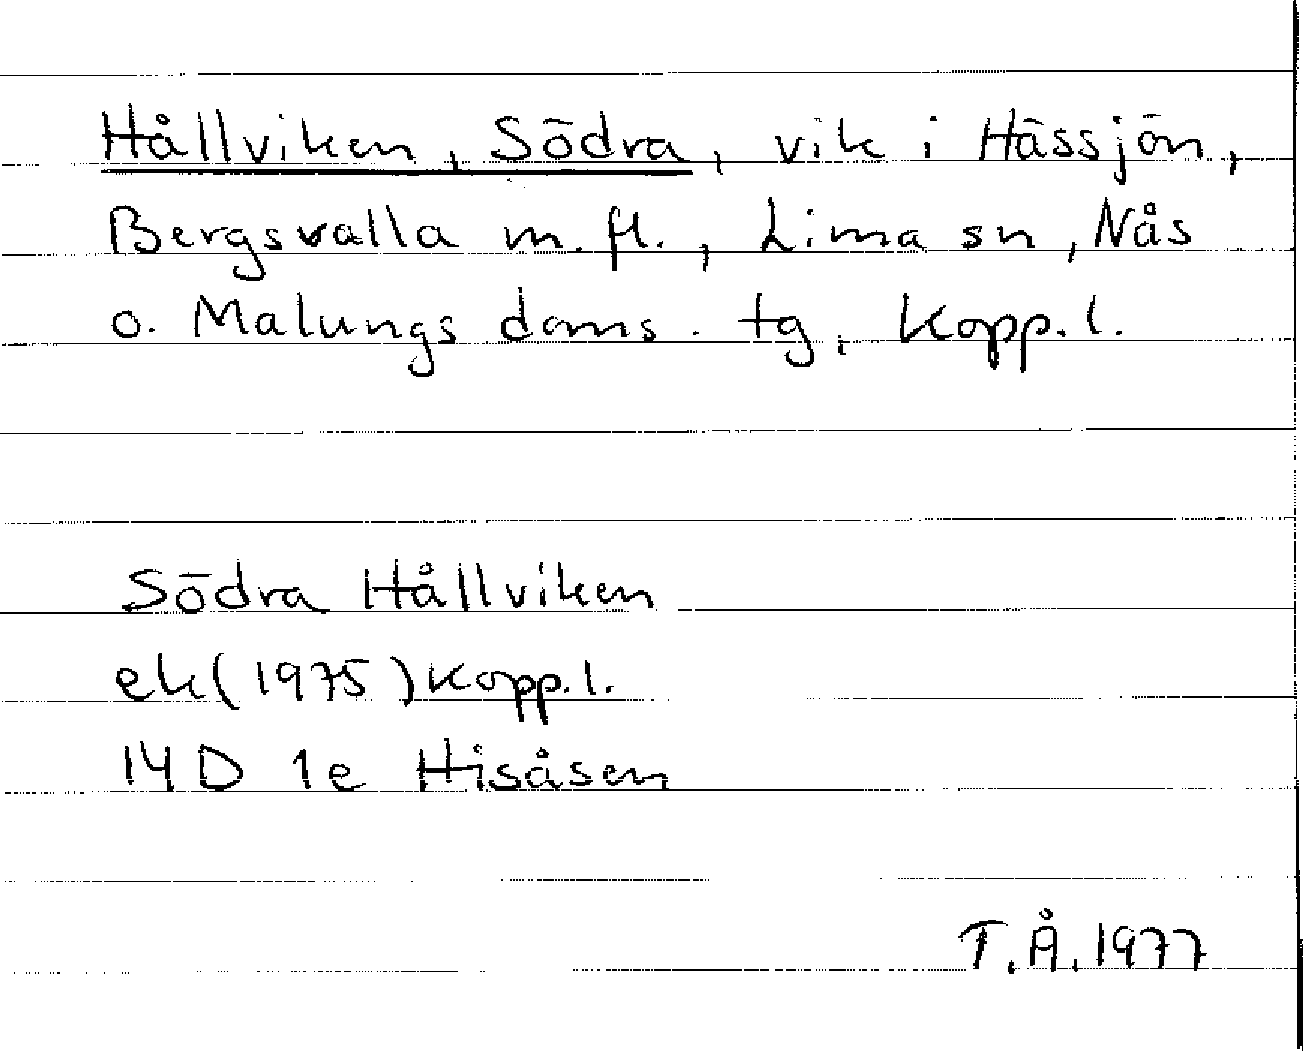 Hållviken, Södra, vik i Hässjön,
Bergsvalla m.fl., Lima sn, Nås
o. Malungs doms. tg, Kopp.l.
Södra Hållviken
ek(1975)Kopp.l.
14D 1e Hisåsen
T.Å.1977